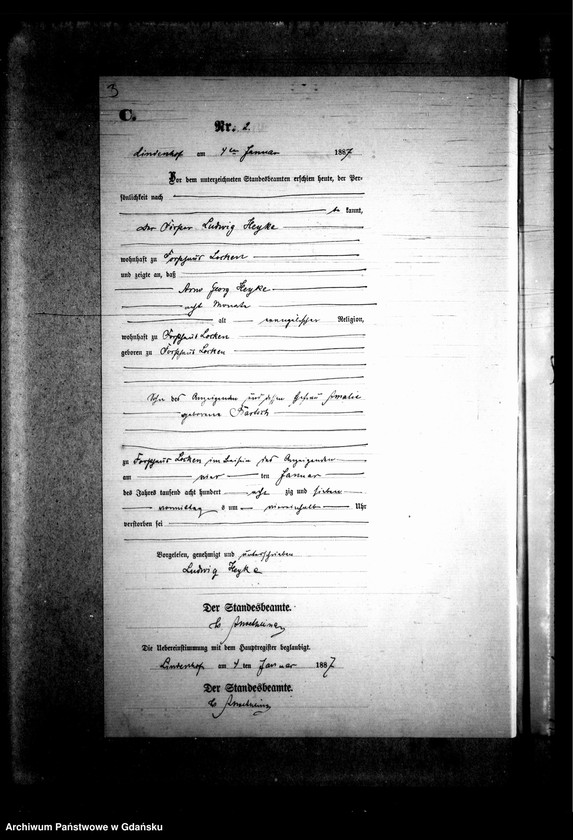 3
C.
Nr. 2.
Lindenhof am 4ten Januar 1887
Vor dem unterzeichneten Standesbeamten erschien heute, der Per-
sönlichkeit nach
be kannt,
der Förster Ludwig Heyke
wohnhaft zu Forsthaus Locken
und zeigte an, daß
Arno Georg Heyke
acht Monate
alt evangelischer Religion,
wohnhaft zu Forsthaus Locken
geboren zu Forsthaus Locken
Sohn des Anzeigenden und dessen Ehefrau Amalie
geborene
zu Forsthaus Locken im Beisein des Anzeigenden
am vier ten Januar
des Jahres tausend acht hundert acht zig und sieben
vormittag s um viereinhalb Uhr
verstorben sei
Vorgelesen, genehmigt und unterschrieben
Ludwig Heyke
Der Standesbeamte.
Die Uebereinstimmung mit dem Hauptregister beglaubigt.
Lindenhof am 4 ten Januar 1887
Der Standesbeamte.
Archiwum Państwowe w Gdańsku